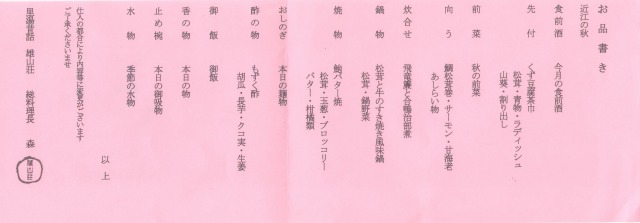 お品書き
近江の秋
食前酒 今月の食前酒
先付 くず豆腐茶巾
松茸・青物・ラディッシュ
山葵・割り出し
前菜 秋の前菜
向う 鯛松茸巻・サーモン・甘海老
あしらい物
炊合せ 飛竜麓と合鴨治部煮
鍋物 松茸と牛のすき焼き風味鍋
松茸・鍋野菜
焼物 鮑バター焼
松茸・玉葱・ブロッコリー
バター・柑橘類
おしのぎ 本日の麺物
酢の物 もずく酢
胡瓜・長芋・クコ実・生姜
御飯 御飯
香の物 本日の香の物
止め椀 本日の御吸物
水物 季節の水物
以上
仕入の都合により内容等に変更がございます
ご了承くださいませ
里湯昔話 雄山荘 総料理長 森
雄山荘